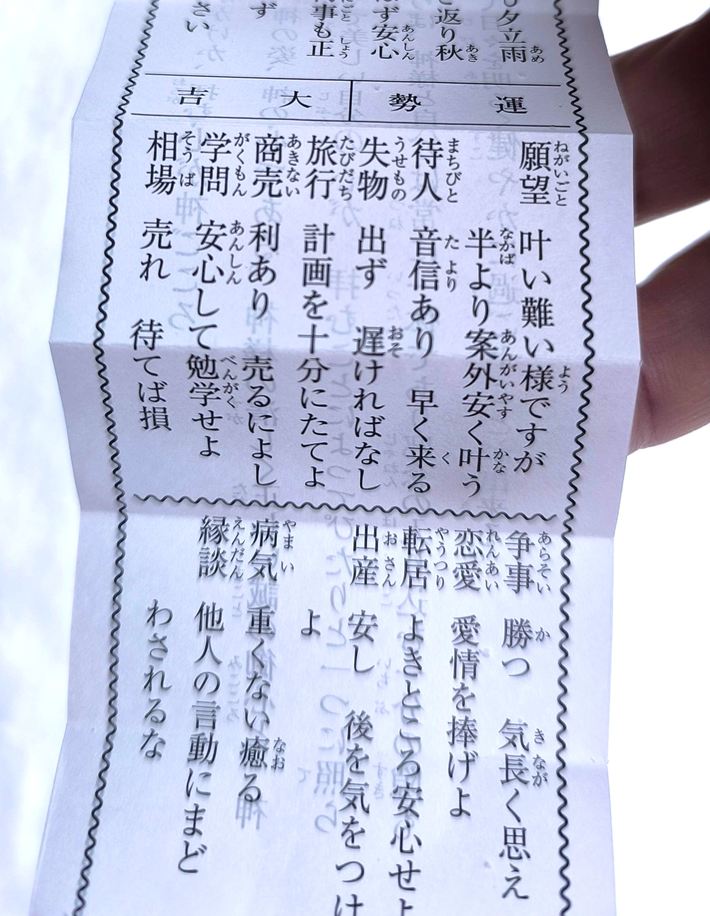 夕立雨
返り秋
ず安心
事も正
ず
さい
運勢
大吉
願望 叶い難い様ですが
半より案外安く叶う
待人 音信あり 早く来る
失物 出ず 遅ければなし
旅行 計画を十分にたてよ
商売 利あり 売るによし
学問 安心して勉学せよ
相場 売れ 待てば損
争事 勝つ 気長く思え
恋愛 愛情を捧げよ
転居 よきところ安心せよ
出産 安し 後を気をつけ
よ
病気 重くない癒る
縁談 他人の言動にまど
わされるな